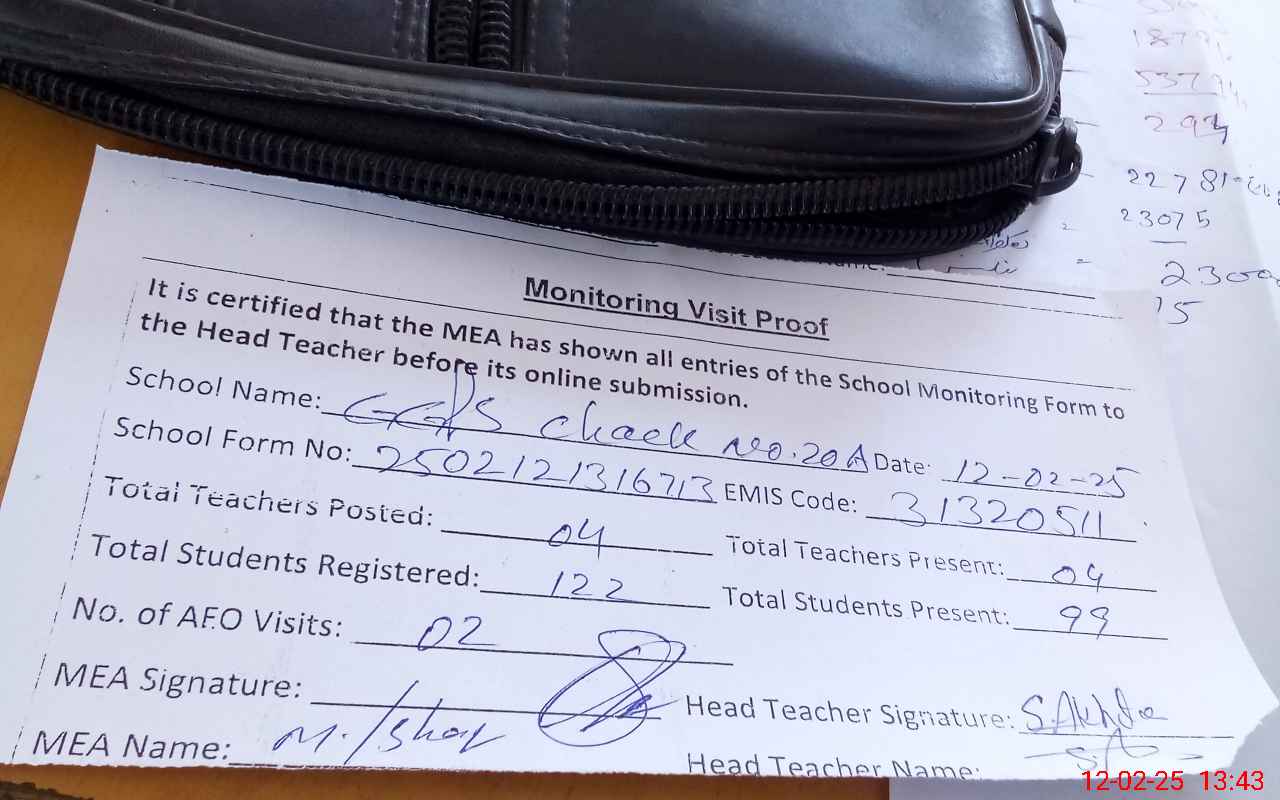 187
537
294
22781
23075
2300
15
Monitoring Visit Proof
It is certified that the MEA has shown all entries of the School Monitoring Form to
the Head Teacher before its online submission.
School Name: GGPS Chack No. 20A Date: 12-02-25
School Form No: 2502121316713 EMIS Code: 31320511
Total Teachers Posted: 04 Total Teachers Present: 04
Total Students Registered: 122 Total Students Present: 99
No. of AEO Visits: 02
MEA Signature: Head Teacher Signature: S.Akhta
MEA Name: M. Ishaq Head Teacher Name:
12-02-25 13:43